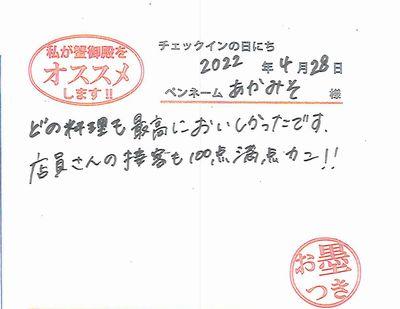 私が蟹御殿を
オススメ
します!!
チェックインの日にち
2022 年 4 月 28 日
ペンネーム あかみそ 様
どの料理も最高においしかったです.
店員さんの接客も100点満点カニ!!
お墨
つき